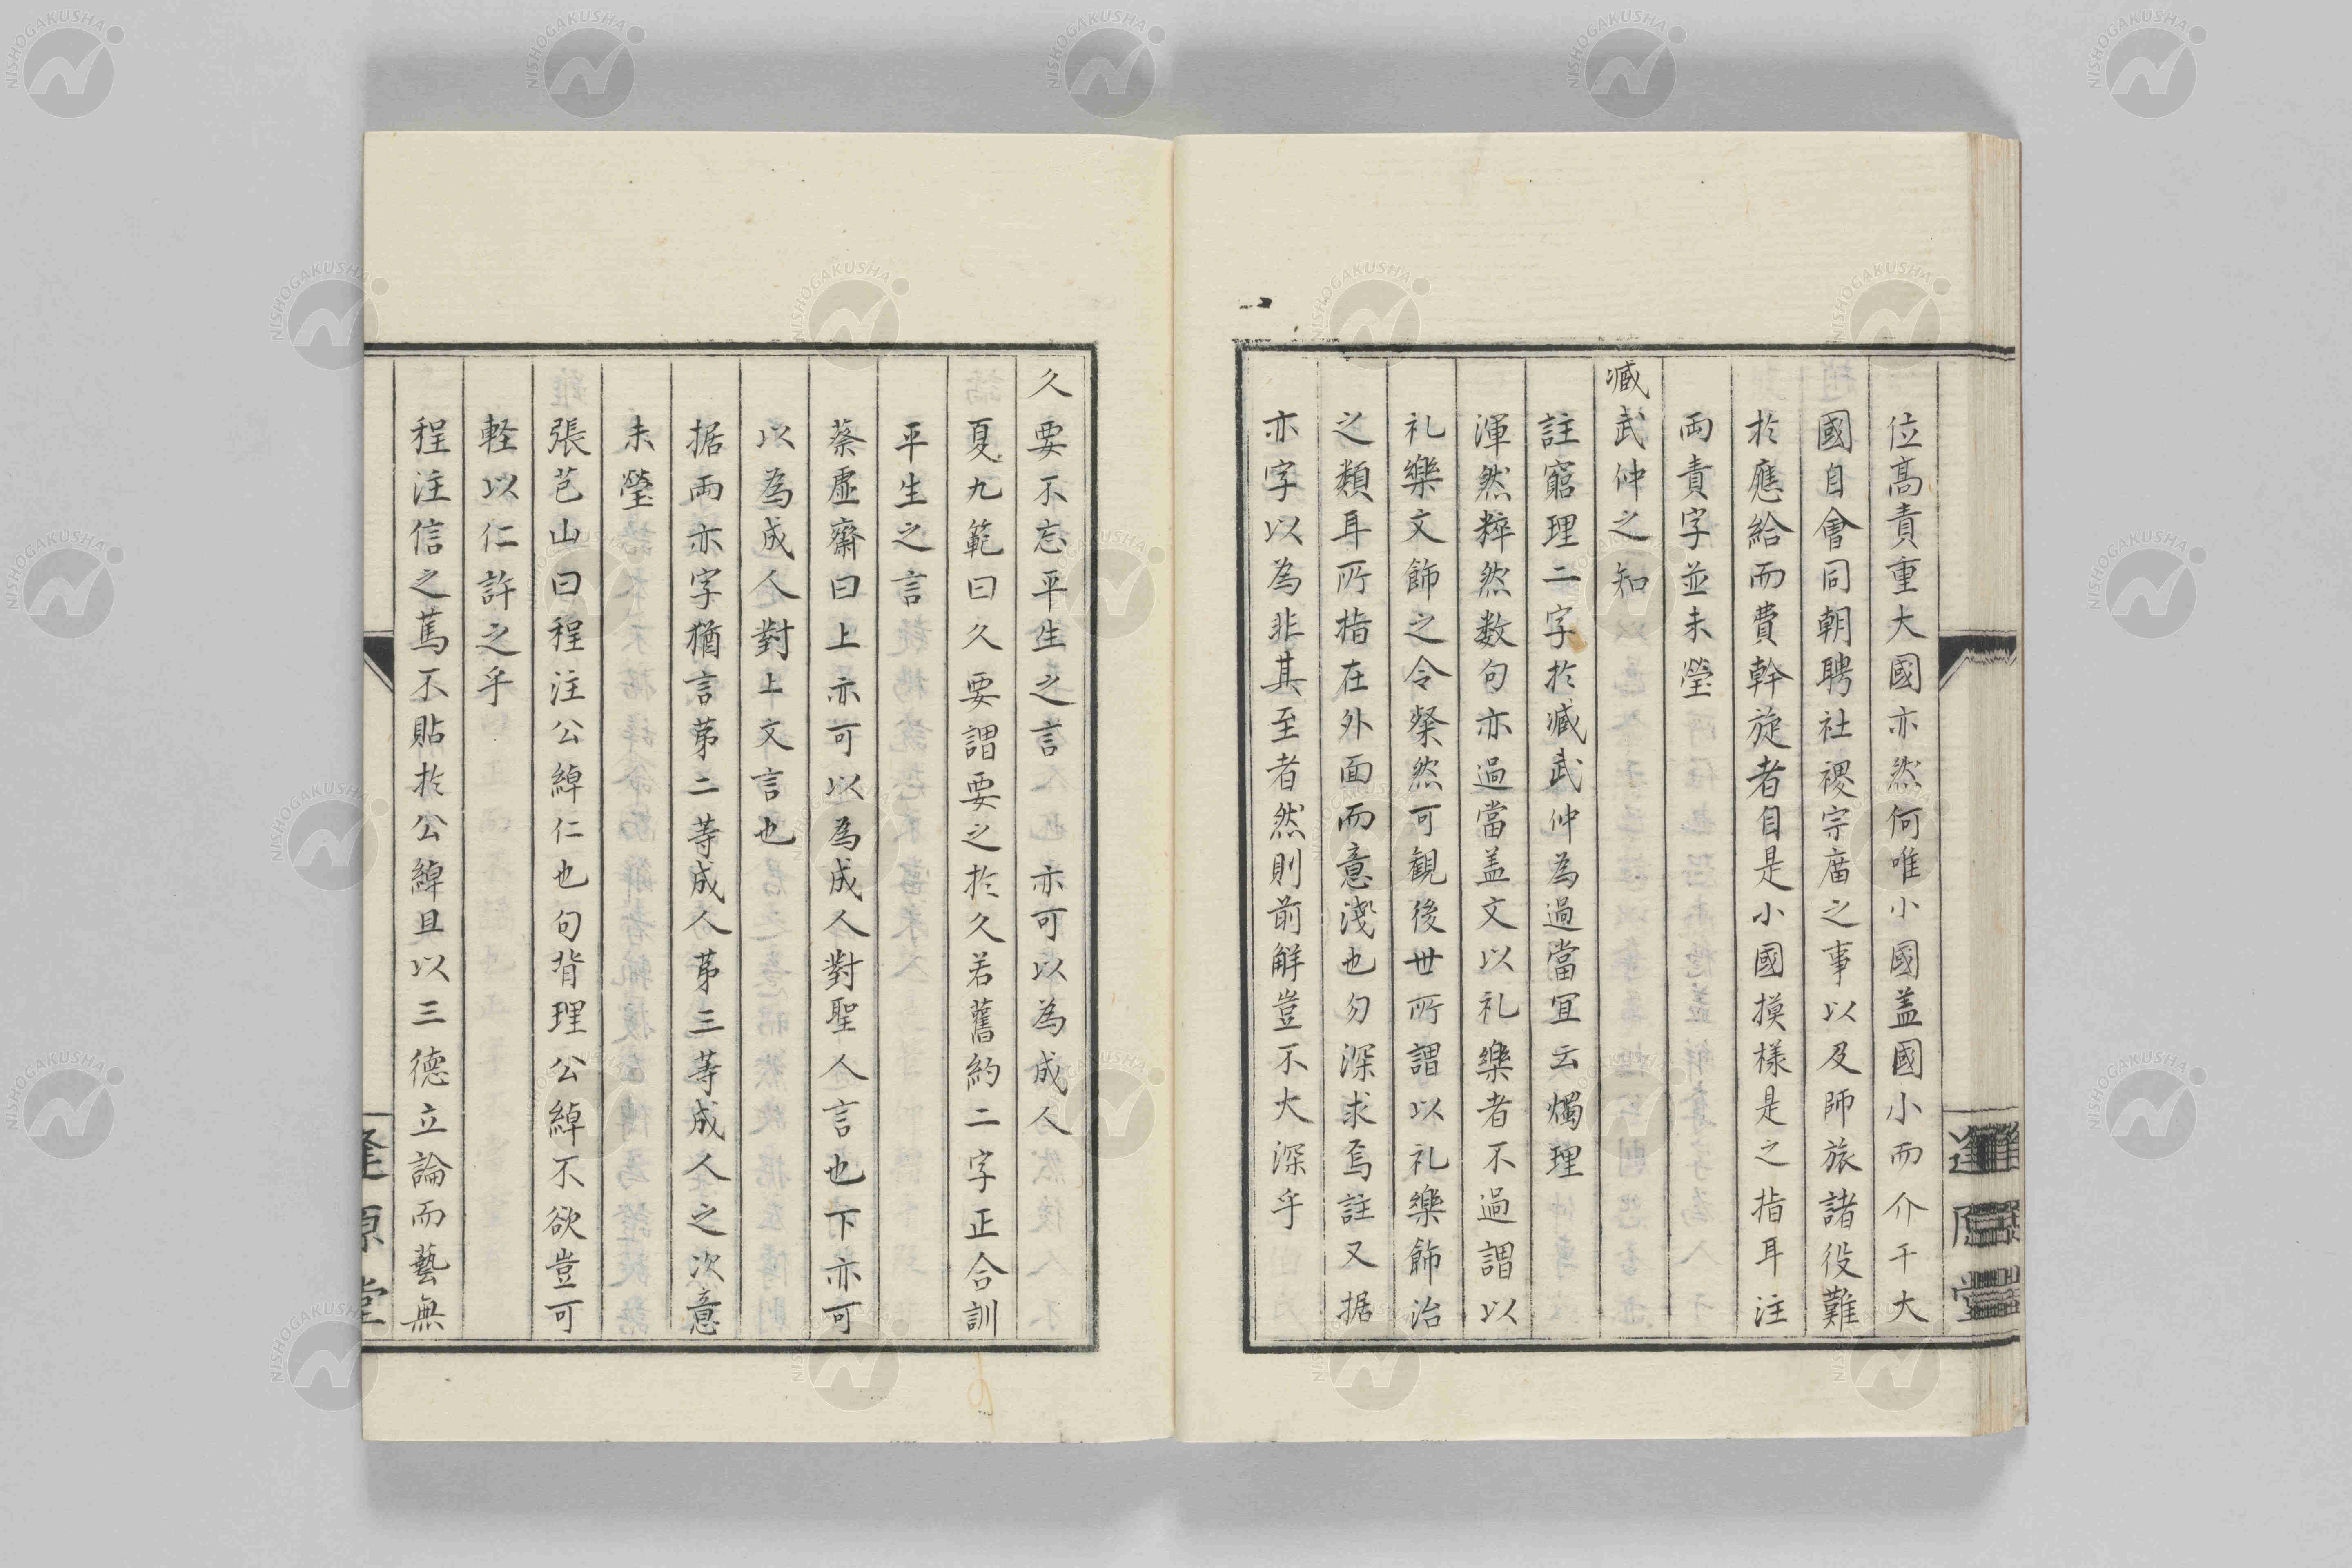 位髙責重大國亦然何唯小國盖國小而介于大
國自會同朝聘社稷宗庿之事以及師旅諸役難
於應給而費幹旋者自是小國摸様是之指耳注
両責字並未瑩
臧武仲之知
註窮理二字於臧武仲為過當冝云燭理
渾然粹然数句亦過當盖文以礼樂者不過謂以
礼樂文飾之令粲然可観後世所謂以礼樂飾治
之類耳所指在外面而意淺也勿深求焉註又据
亦字以為非其至者然則前解豈不大深乎
久要不忘平生之言 亦可以為成人
夏九範曰久要謂要之於久若舊約二字正合訓
平生之言
蔡虚齋曰上亦可以為成人對聖人言也下亦可
以為成人對上文言也
据両亦字猶言苐二等成人苐三等成人之次意
未瑩
張芑山曰程注公綽仁也句背理公綽不欲豈可
軽以仁許之乎
程注信之篤不貼於公綽且以三德立論而藝無
逢原堂
NISHOGAKUSHA